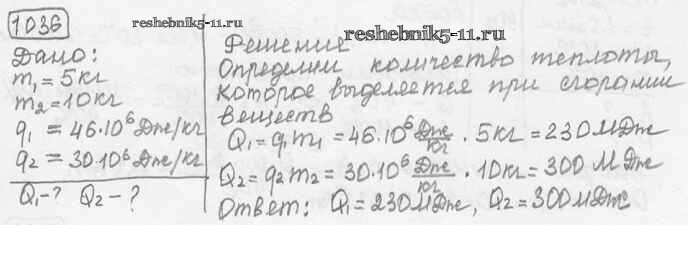 1036
reshebnik5-11.ru
Дано:
m₁ = 5кг
m₂ = 10кг
q₁ = 46·10⁶ Дж/кг
q₂ = 30·10⁶ Дж/кг
Q₁ - ? Q₂ - ?
Решение
reshebnik5-11.ru
Определим количество теплоты,
которое выделяется при сгорании
веществ
Q₁ = q₁m₁ = 46·10⁶ Дж/кг · 5кг = 230 МДж
Q₂ = q₂m₂ = 30·10⁶ Дж/кг · 10кг = 300 МДж
Ответ: Q₁ = 230 МДж, Q₂ = 300 МДж